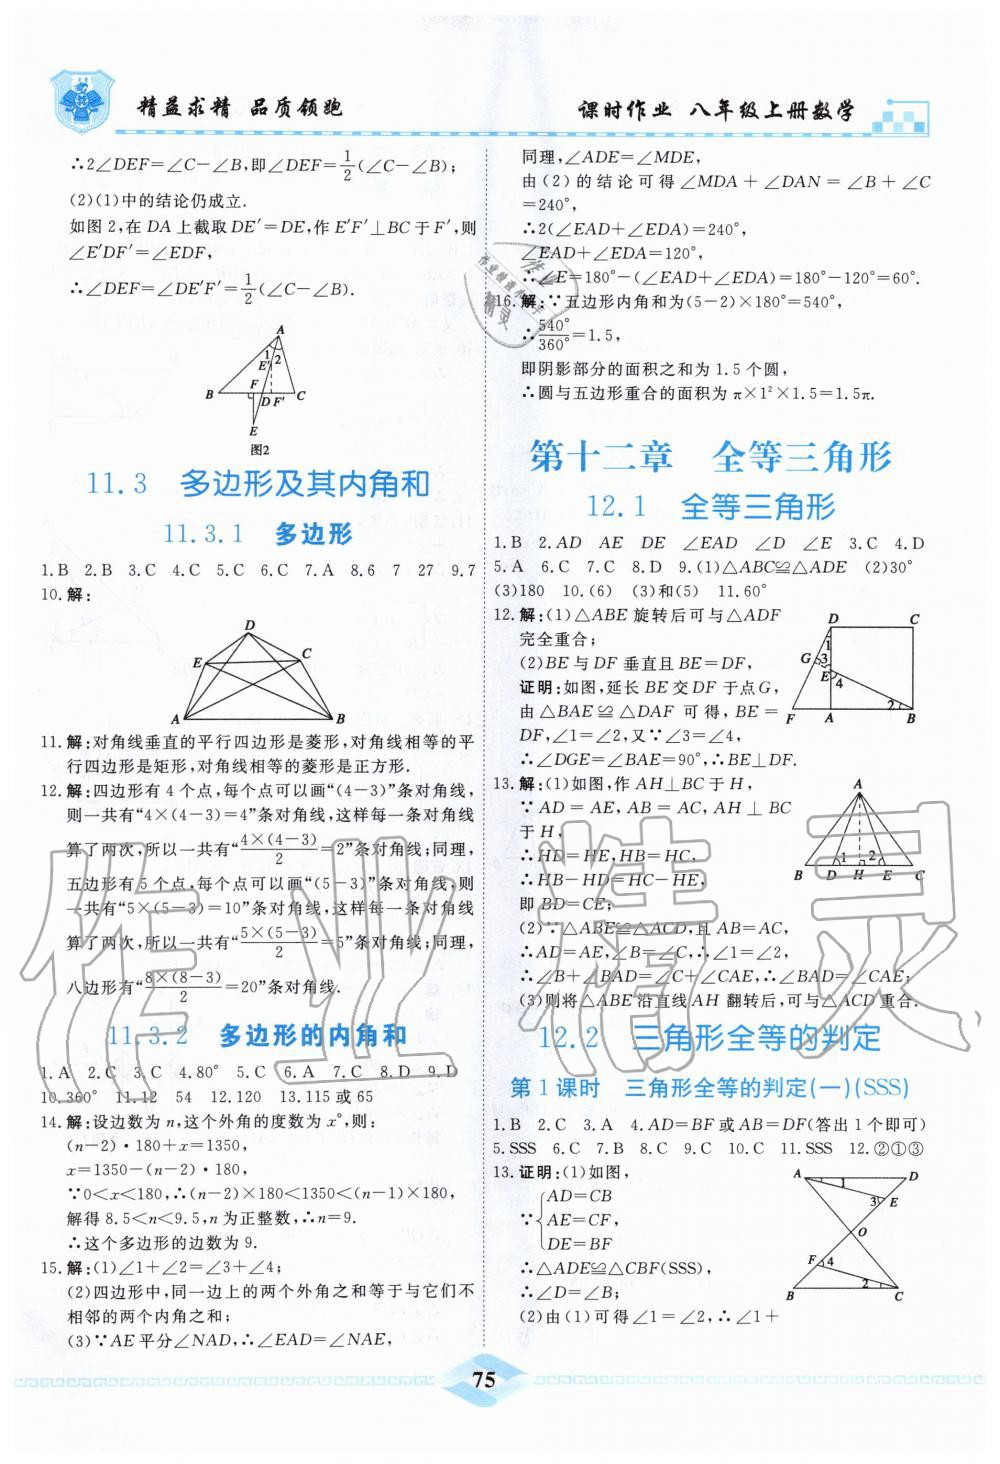 精益求精 品质领跑
课时作业 八年级上册数学
∴2∠DEF=∠C-∠B,即∠DEF=1/2(∠C-∠B);
(2)(1)中的结论仍成立.
如图2,在DA上截取DE′=DE,作E′F′⊥BC于F′,则
∠E′DF′=∠EDF,
∴∠DEF=∠DE′F′=1/2(∠C-∠B).
A
1 2
E′
F
B D F′ C
E
图2
11.3 多边形及其内角和
11.3.1 多边形
1.B 2.B 3.C 4.C 5.C 6.C 7.A 8.6 7 27 9.7
10.解:
D
E C
A B
11.解:对角线垂直的平行四边形是菱形,对角线相等的平
行四边形是矩形,对角线相等的菱形是正方形.
12.解:四边形有4个点,每个点可以画“(4-3)”条对角线,
则一共有“4×(4-3)=4”条对角线,这样每一条对角线
算了两次,所以一共有“4×(4-3)/2=2”条对角线;同理,
五边形有5个点,每个点可以画“(5-3)”条对角线,则一
共有“5×(5-3)=10”条对角线,这样每一条对角线
算了两次,所以一共有“5×(5-3)/2=5”条对角线;同理,
八边形有“8×(8-3)/2=20”条对角线.
11.3.2 多边形的内角和
1.A 2.C 3.C 4.80° 5.C 6.A 7.C 8.D 9.D
10.360° 11.12 54 12.120 13.115或65
14.解:设边数为n,这个外角的度数为x°,则:
(n-2)·180+x=1350,
x=1350-(n-2)·180,
∵0<x<180,∴(n-2)×180<1350<(n-1)×180,
解得8.5<n<9.5,n为正整数,∴n=9.
∴这个多边形的边数为9.
15.解:(1)∠1+∠2=∠3+∠4;
(2)四边形中,同一边上的两个外角之和等于与它们不
相邻的两个内角之和;
(3)∵AE平分∠NAD,∴∠EAD=∠NAE,
同理,∠ADE=∠MDE,
由(2)的结论可得∠MDA+∠DAN=∠B+∠C
=240°,
∴2(∠EAD+∠EDA)=240°,
∠EAD+∠EDA=120°,
∴∠E=180°-(∠EAD+∠EDA)=180°-120°=60°.
16.解:∵五边形内角和为(5-2)×180°=540°,
∴540°/360°=1.5,
即阴影部分的面积之和为1.5个圆,
∴圆与五边形重合的面积为π×1²×1.5=1.5π.
第十二章 全等三角形
12.1 全等三角形
1.B 2.AD AE DE ∠EAD ∠D ∠E 3.C 4.D
5.A 6.C 7.C 8.D 9.(1)△ABC≌△ADE (2)30°
(3)180 10.(6) (3)和(5) 11.60°
12.解:(1)△ABE旋转后可与△ADF
完全重合;
(2)BE与DF垂直且BE=DF,
证明:如图,延长BE交DF于点G,
由△BAE≌△DAF可得,BE=
DF,∠1=∠2,又∵∠3=∠4,
∴∠DGE=∠BAE=90°,∴BE⊥DF.
D C
1
G 3
E 4
2
F A B
13.解:(1)如图,作AH⊥BC于H,
∵AD=AE,AB=AC,AH⊥BC
于H,
∴HD=HE,HB=HC,
∴HB-HD=HC-HE,
即BD=CE.
(2)∵△ABE≌△ACD,且AB=AC,
∴AD=AE,∠B=∠C,∴∠1=∠2,
∴∠B+∠BAD=∠C+∠CAE,∴∠BAD=∠CAE;
(3)则将△ABE沿直线AH翻转后,可与△ACD重合.
A
1 2
B D H E C
12.2 三角形全等的判定
第1课时 三角形全等的判定(一)(SSS)
1.B 2.C 3.A 4.AD=BF或AB=DF(答出1个即可)
5.SSS 6.B 7.B 8.C 9.C 10.C 11.SSS 12.②①③
13.证明:(1)如图,
AD=CB
∵ AE=CF,
DE=BF
∴△ADE≌△CBF(SSS),
∴∠D=∠B;
(2)由(1)可得∠1=∠2,∴∠1+
A D
1
3 E
O
F 4
2
B C
75
作业精灵